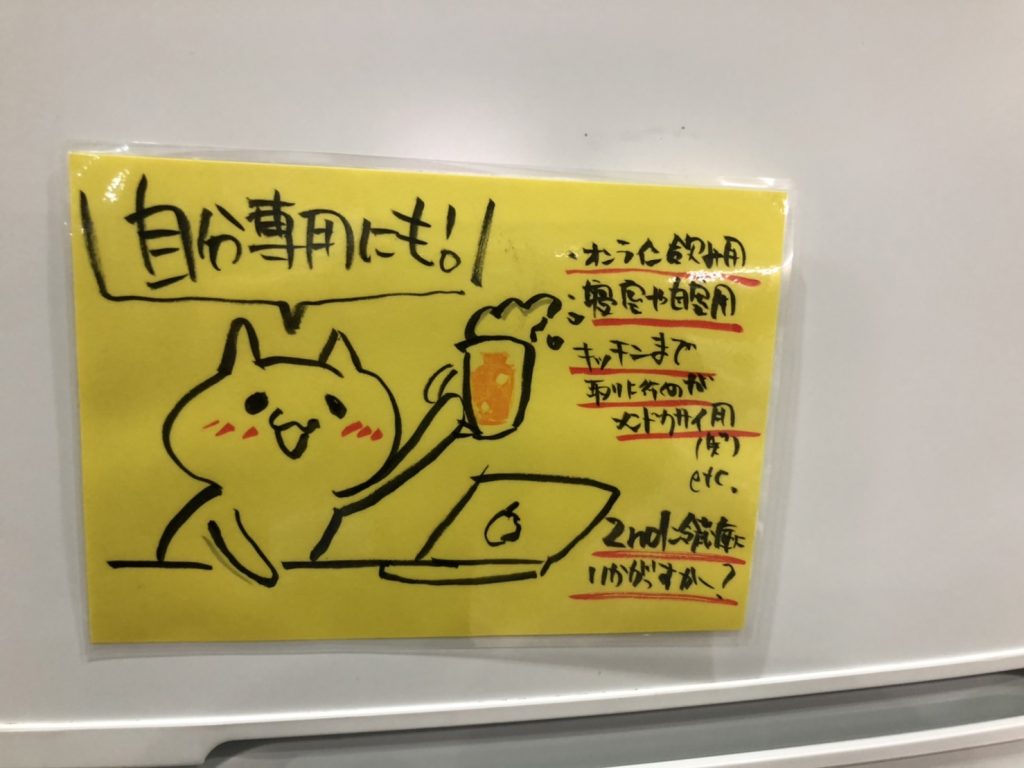 自分専用にも!
・オンライン飲み用
・寝室や自室用
キッチンまで
取りに行くのが
メンドクサイ用
etc.
2nd冷蔵庫に
いかがっすか〜?